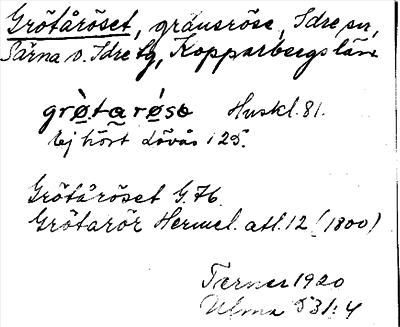 Grötåröset, gränsröse, Idre sn,
Särna o. Idre tg, Kopparbergs län
grò̱ta̱rò̱sə Huskl. 81.
Ej hört Lövås 125.
Grötåröset G. 76.
Grötarör Hermel. atl. 12 (1800)
Terner 1920
Ulma 531:4